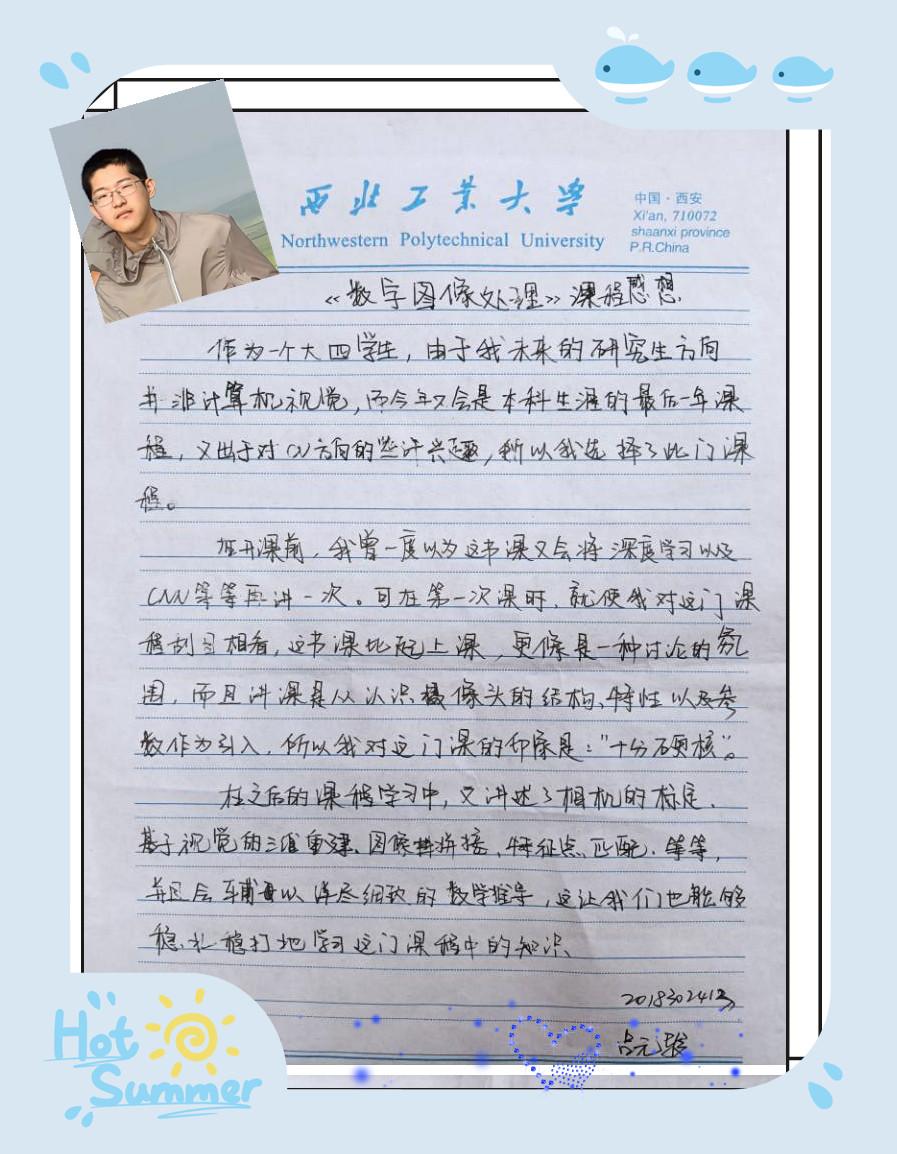 西北工业大学
Northwestern Polytechnical University
中国·西安
Xi'an, 710072
shaanxi province
P.R.China
《数字图像处理》课程感想
作为一个大四学生，由于我未来的研究生方向
并非计算机视觉，而今年又会是本科生涯的最后一年课
程，又出于对CV方向的些许兴趣，所以我选择了此门课
程。
在开课前，我曾一度以为这节课又会将深度学习以及
CNN等等再讲一次。可在第一次课时，就使我对这门课
程刮目相看，这节课比起上课，更像是一种讨论的氛
围，而且讲课是从认识摄像头的结构、特性以及参
数作为引入，所以我对这门课的印象是："十分硬核"。
在之后的课程学习中，又讲述了相机的标定、
基于视觉的三维重建、图像拼接、特征点匹配、等等，
并且会辅以详尽细致的数学推导，这让我们也能够
稳扎稳打地学习这门课程中的知识、
20183024
吕元
Hot
Summer